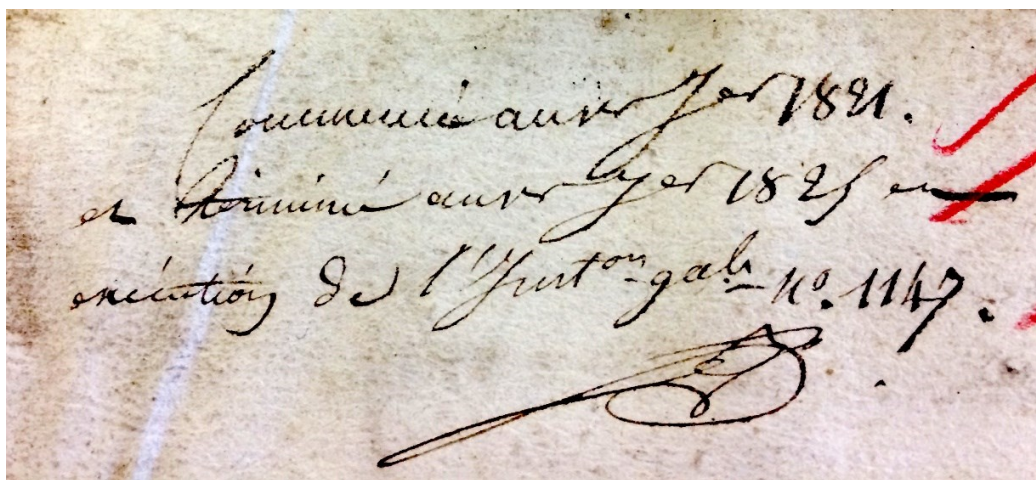 Commencé au 1er Jer 1821.
et terminé au 1er Jer 1825 en
exécution de l'Inston gale no. 1147.